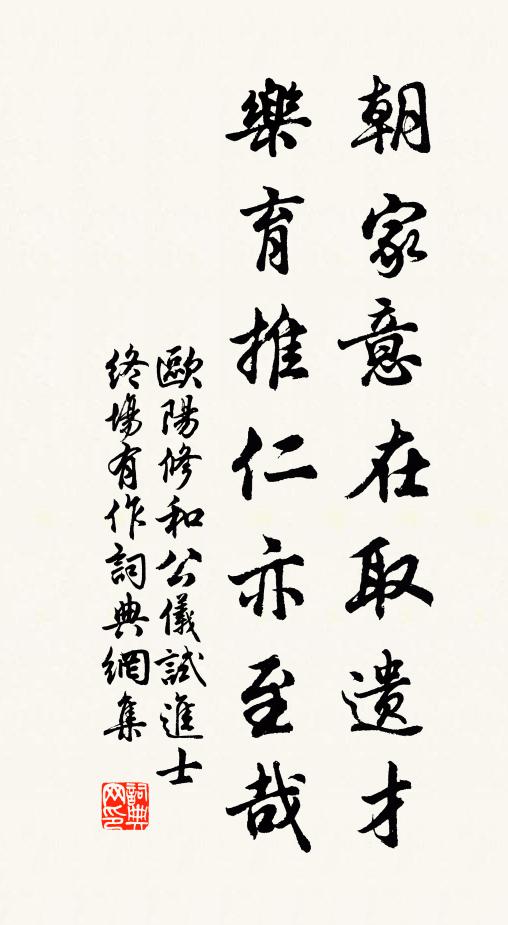 朝家意在取遗才
樂育推仁亦至哉
歐陽修和公儀試進士
終場有作詞典網集
詞典
网印